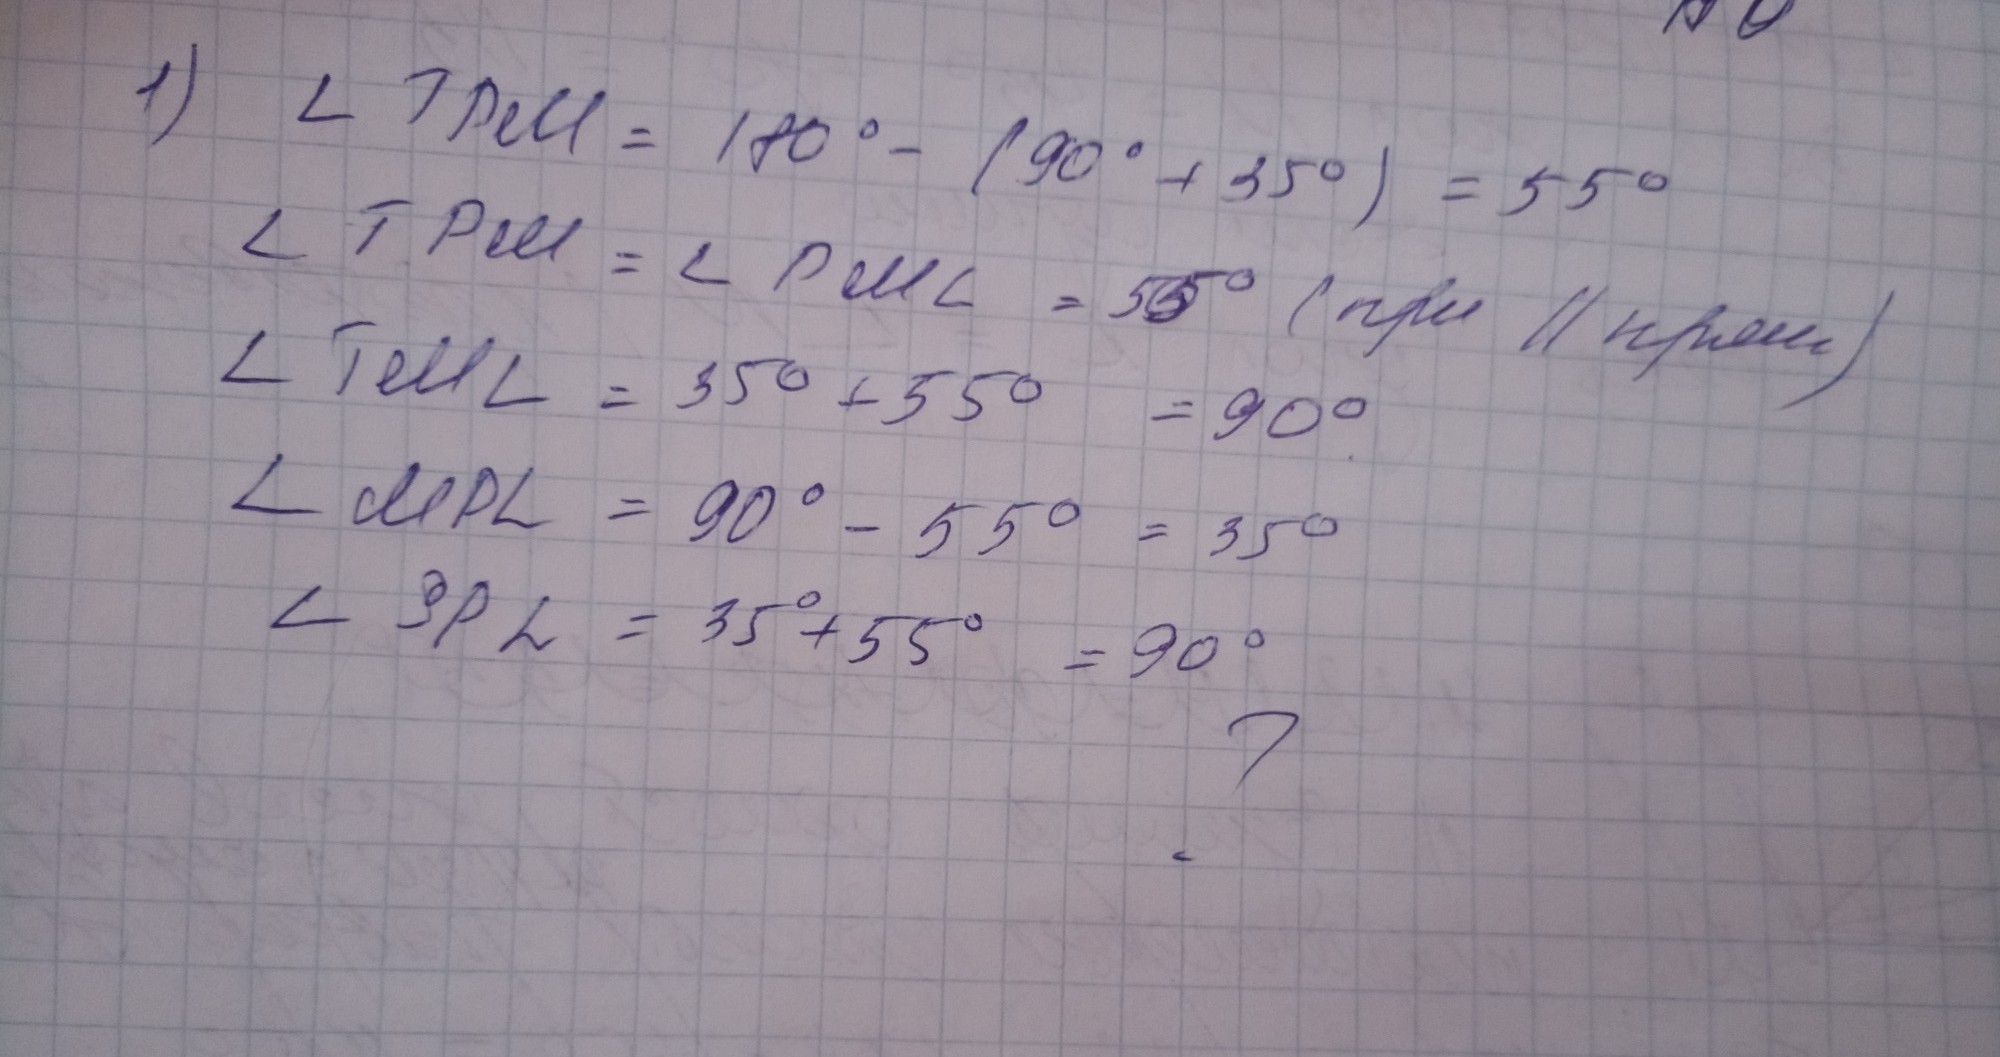 1) ∠ TPM = 180° - (90° + 35°) = 55°
∠ TPM = ∠ PML = 55° (при || прям)
∠ TML = 35° + 55° = 90°
∠ MPL = 90° - 55° = 35°
∠ ЭPL = 35° + 55° = 90°
?